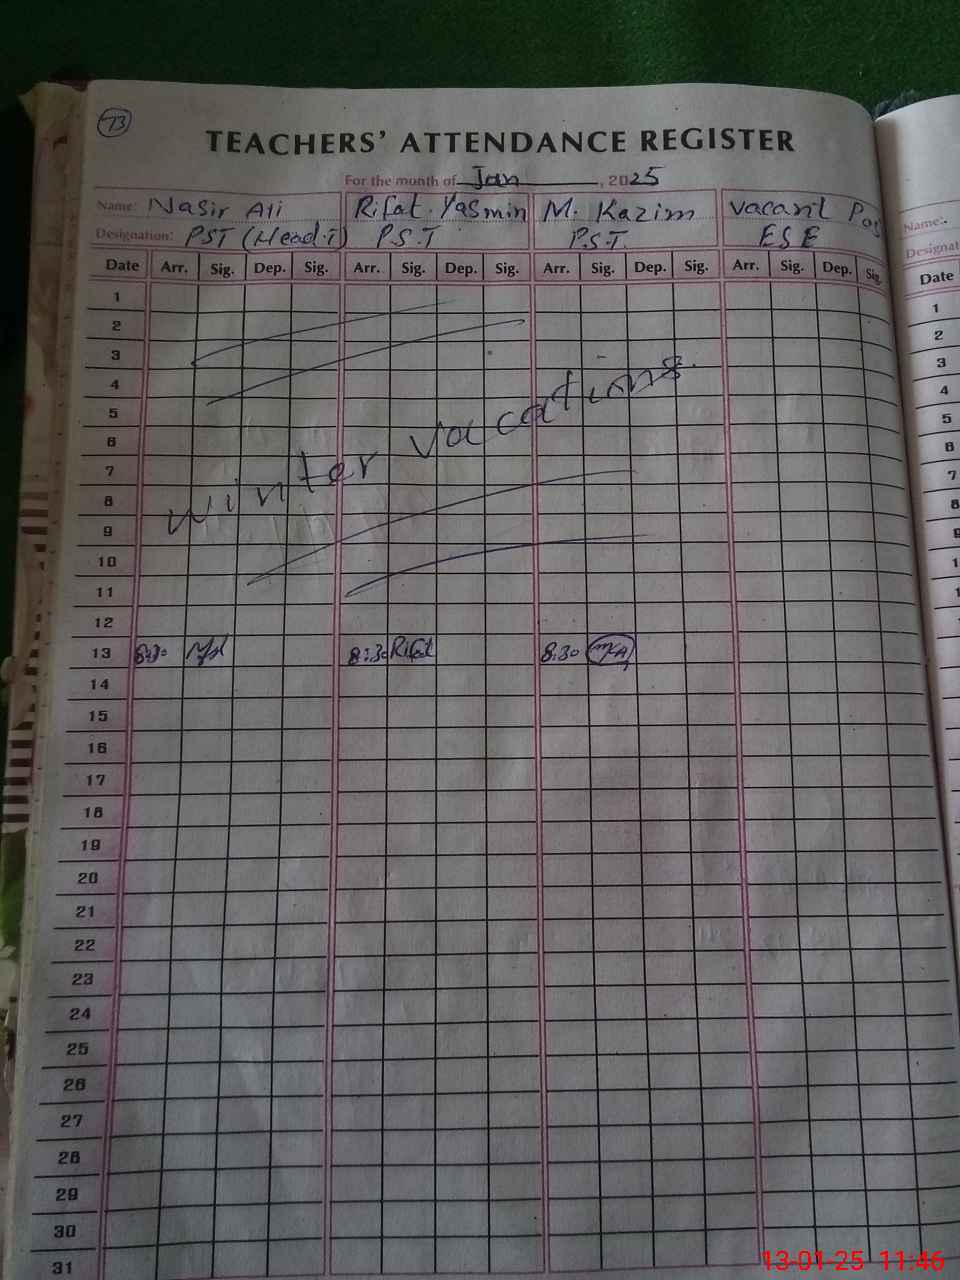 73
TEACHERS' ATTENDANCE REGISTER
For the month of Jan, 2025
Name: Nasir Ali Rifat Yasmin M. Kazim Vacant Pos Name:
Designation: PST (Head.T) P.S.T P.S.T. ESE Designat
Date Arr. Sig. Dep. Sig. Arr. Sig. Dep. Sig. Arr. Sig. Dep. Sig. Arr. Sig. Dep. Sig. Date
1 1
2 2
3 3
4 4
5 5
6 6
7 7
8 8
9 9
10 1
11 1
winter vacations.
12
13 8:30 8:30 Rifat 8:30 MKA
14
15
16
17
18
19
20
21
22
23
24
25
26
27
28
29
30
31
13-01-25 11:46